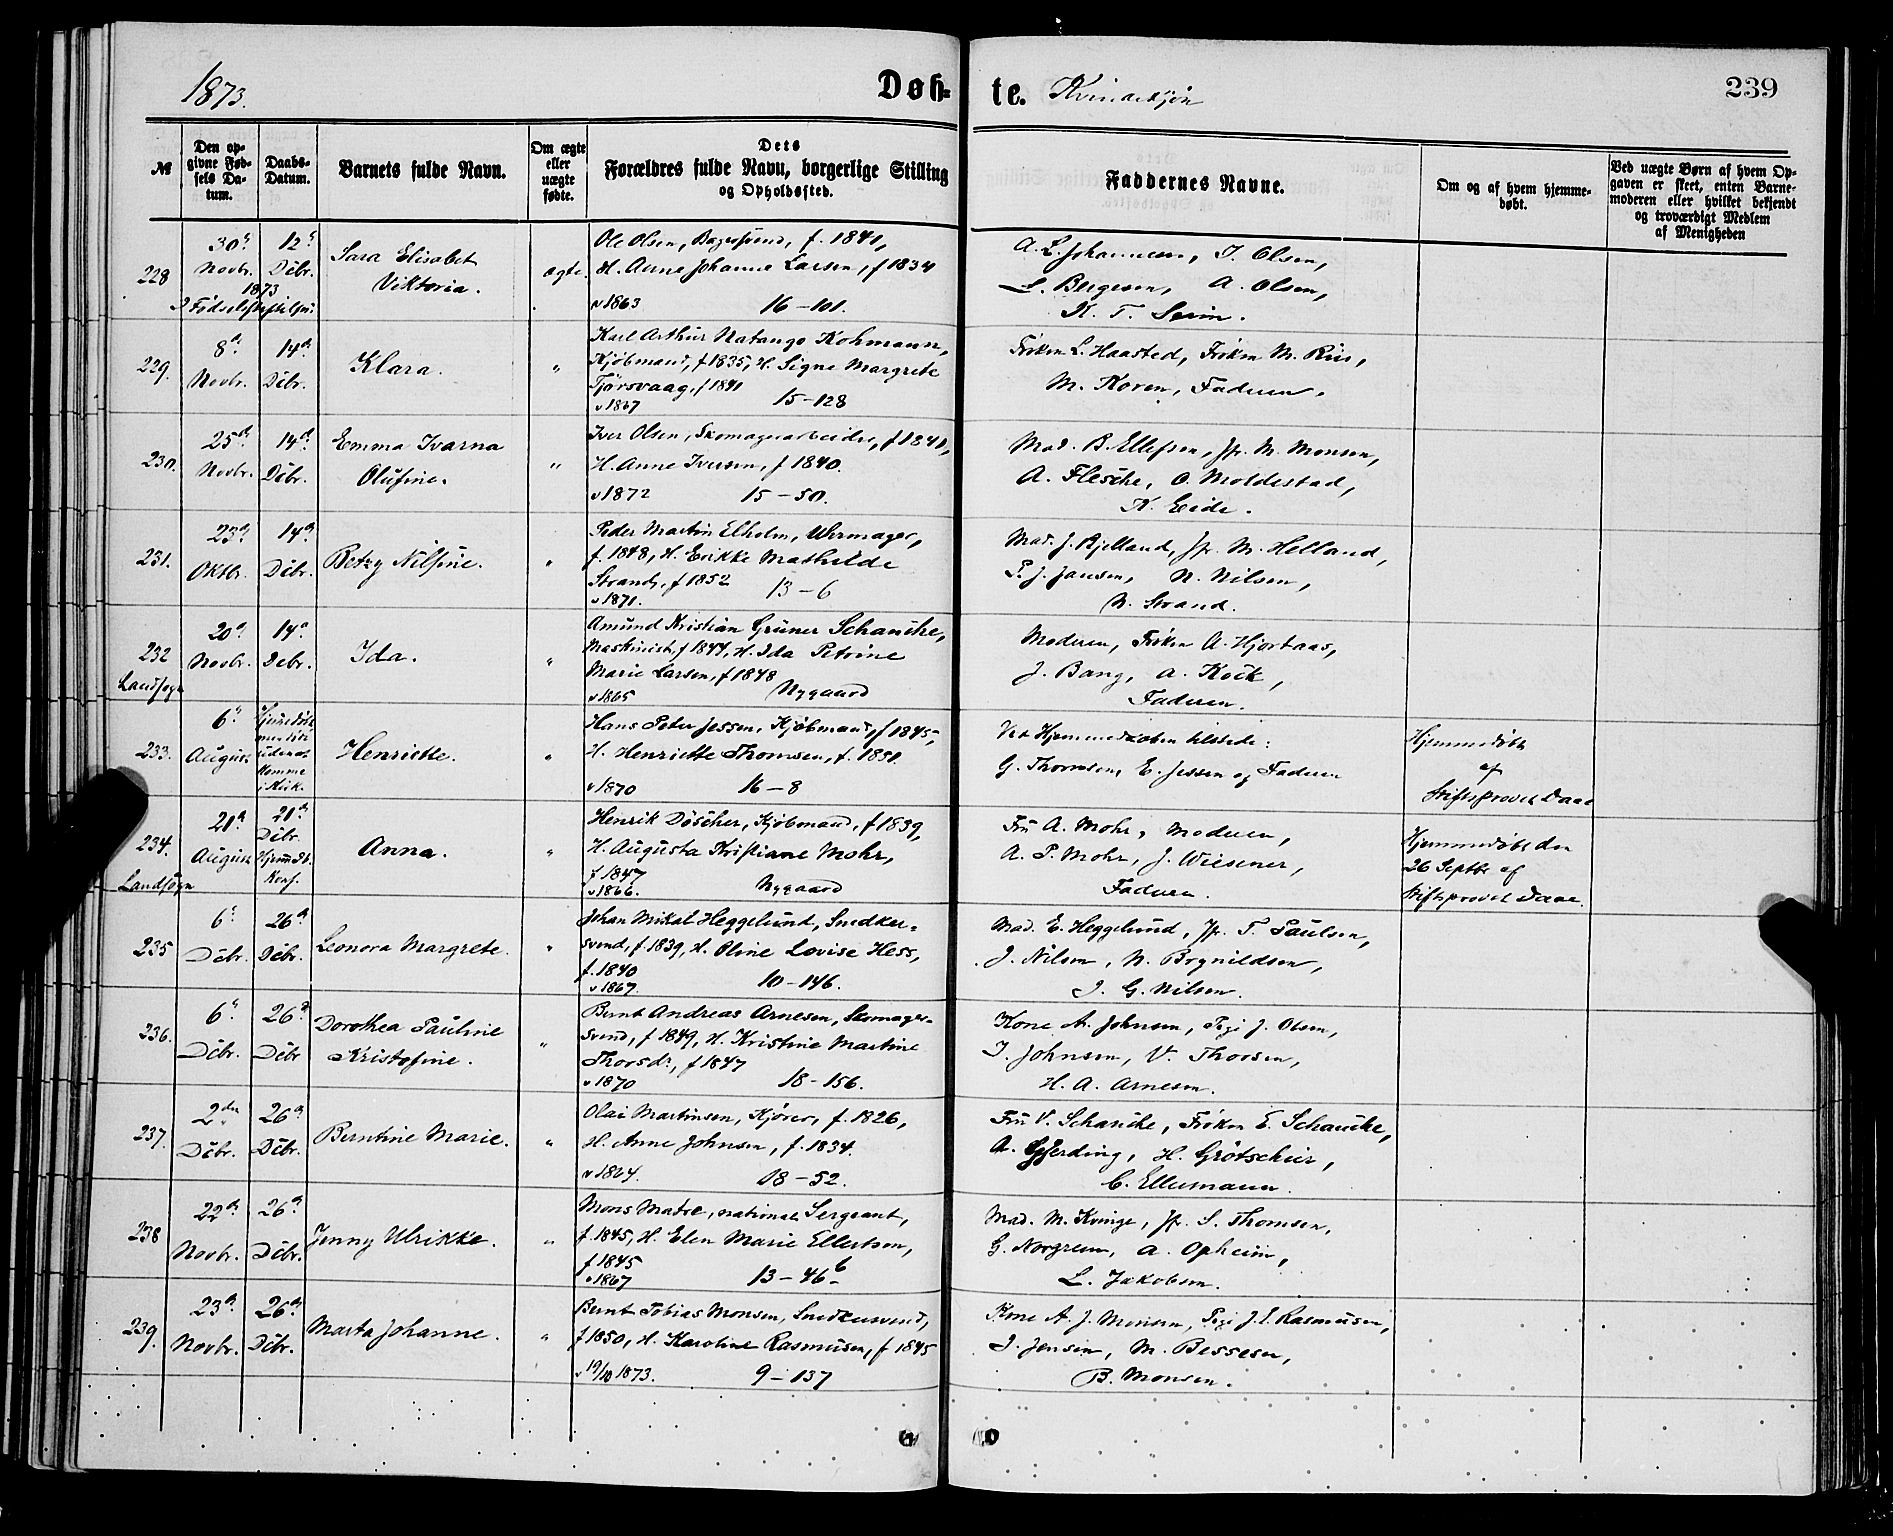 1873.
Døb-
te. Kvindekjøn
239
№
Den op-
givne Fød-
sels Da-
tum.
Daabs-
Datum.
Barnets fulde Navn.
Om ægte
eller
uægte
fødte.
Dets
Forældres fulde Navn, borgerlige Stilling
og Opholdssted.
Faddernes Navne.
Om og af hvem hjemme-
døbt.
Ved uægte Børn af hvem Op-
gaven er skeet, enten Barne-
moderen eller hvilket bekjendt
og troværdigt Medlem
af Menigheden
228
30te
Novbr.
1873
12te
Dcbr.
Sara Elisabet
Viktoria.
ægte.
Ole Olsen, Bagersvend, f. 1841,
H. Anne Johanne Larsen, f 1834
v 1863 16-101.
A. L. Johannesen, I. Olsen,
L. Bergesen, A. Olsen,
K. T. Seim.
229.
8de
Novbr.
14de
Dcbr.
Klara.
"
Karl Arthur Natango Kohmann,
Kjøbmand, f 1835, H. Signe Margrete
Tjørsvaag, f 1841
v 1867 15-128
Frøken L. Haasted, Frøken M. Riis,
M. Koren, Faderen.
230.
25de
Novbr.
14de
Dcbr.
Emma Ivarna
Olufine.
"
Iver Olsen, Skomagerarbeider, f 1841,
H. Anne Iversen, f 1840.
v 1872 15-50.
Mad. B. Ellefsen, Jfr. M. Monsen,
A. Flesche, O. Moldestad,
K. Eide.
231.
23de
Oktbr.
14de
Dcbr.
Betzy Nilsine.
"
Peder Martin Elholm, Uhrmager,
f. 1848, H. Erikke Mathilde
Strand, f 1852
v 1871. 13-6
Mad. J. Bjelland, Jfr. M. Helland,
P. J. Jansen, N. Nilsen,
N. Strand.
232
Landsogn
20de
Novbr.
14de
Dcbr.
Ida.
"
Amund Kristian Grüner Schanche,
Maskinist, f 1844, H. Ida Petrine
Marie Larsen, f 1848
v 1865 Nygaard
Moderen, Frøken A. Hjortaas,
J. Bang, A. Kock,
Faderen.
233.
6te
August
Hjemmedøbt
uden at
komme
i Kirk.
Henriette.
"
Hans Peter Jessen, Kjøbmand, f 1845,
H. Henriette Thomsen, f. 1850
v 1870 16-8
Ved Hjemmedaaben tilstede:
G. Thomsen, E. Jessen og Faderen
Hjemmedøbt
af
Stiftsprovst Daae
234.
Landsogn
20de
August
21de
Dcbr.
Hjemmd.
Konf.
Anna.
"
Henrik Döscher, Kjøbmand, f 1839,
H. Augusta Kristiane Mohr,
f 1847
v 1866. Nygaard
Fru A. Mohr, Moderen,
A. P. Mohr, J. Wiesener,
Faderen.
Hjemmedøbt den
26 Septbr af
Stiftsprovst Daae.
235
6te
Dcbr.
26de
Dcbr.
Leonora Margrete.
"
Johan Mikal Heggelund, Snedker-
svend, f. 1839, H. Oline Lovise Hess,
f. 1840
v 1867. 10-146.
Mad. E. Heggelund, Jfr. T. Paulsen,
J. Nilsen, N. Brynildsen,
J. G. Nilsen.
236.
6te
Dcbr.
26de
Dcbr
Dorothea Pauline
Kristofine.
"
Bernt Andreas Arnesen, Skomager-
svend, f 1849, H. Kristine Martine
Thorsdr, f 1847
v 1870 18-156.
Kone A. Johnsen, Pige J. Olsen,
I. Johnsen, V. Thorsen,
H. A. Arnesen.
237.
2den
Dcbr.
26de
Dcbr.
Berntine Marie.
"
Olai Martinsen, Kjører, f. 1826,
H. Anne Johnsen, f. 1834.
v 1864. 18-52.
Fru V. Schanche, Frøken E. Schanche,
A. Gjerding, H. Grötscheir,
C. Ellermann.
238
22de
Novbr.
26de
Dcbr.
Jenny Ulrikke.
"
Mons Matre, national Sergeant,
f. 1845, H. Elen Marie Ellertsen,
f 1845
v 1867 13-46 b
Mad. M. Kvinge, Jfr. S. Thomsen,
G. Norgreen, A. Opheim,
L. Jakobsen.
239.
23de
Novbr.
26de
Dcbr.
Marta Johanne.
"
Bernt Tobias Monsen, Snedkersvend,
f 1850, H. Karoline Rasmusen, f 1845
v 19/10 1873. 9-137
Kone A. J. Monsen, Pige J. E. Rasmusen,
I. Jensen, M. Bessesen,
B. Monsen.